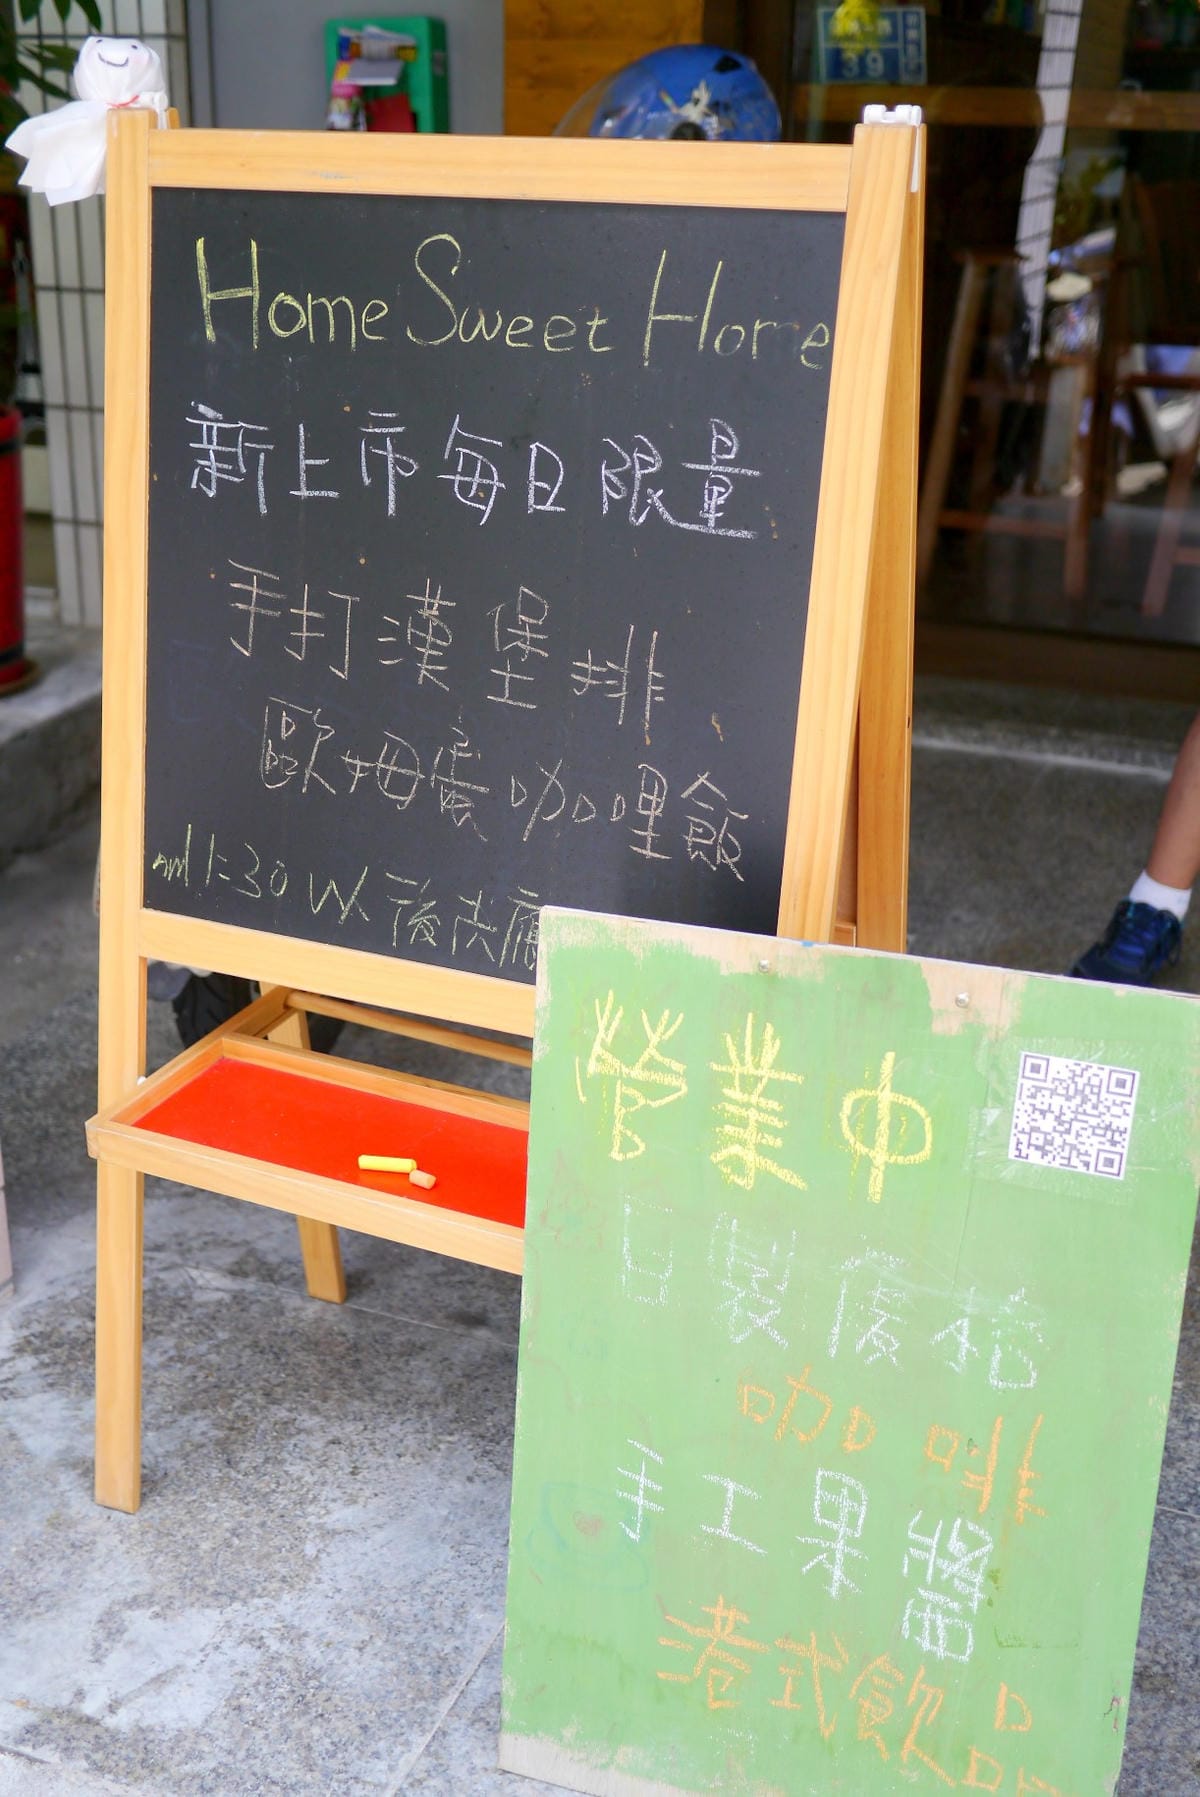 39
Home Sweet Home
新上市每日限量
手打漢堡排
歐姆蛋咖哩飯
AM 11:30 以後供應
營業中
日製優格
咖啡
手工果醬
港式飲品